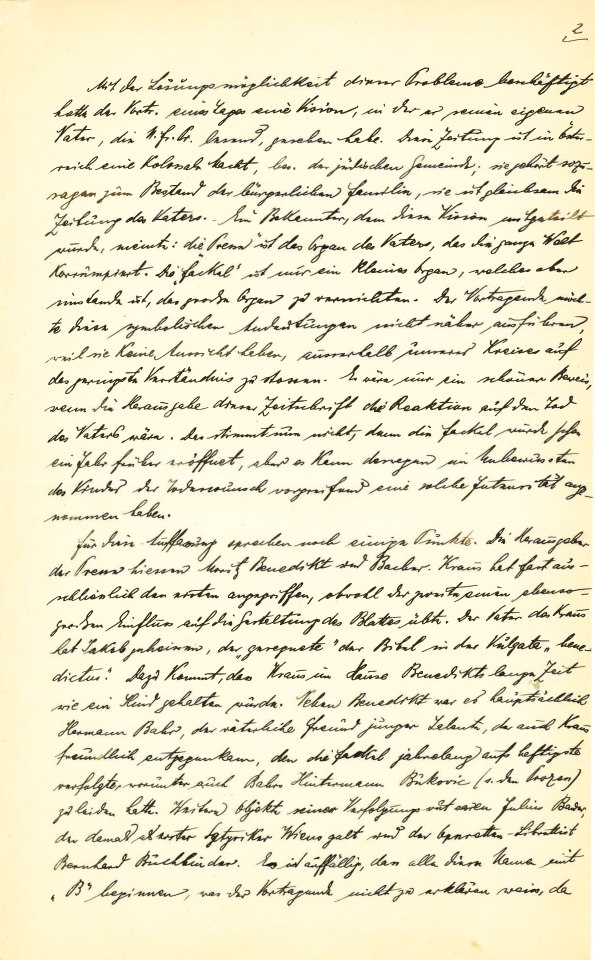 2
Mit der Lösungsmöglichkeit dieser Probleme beschäftigt
hatte der Vortr. eines Tages eine Vision, in der er seinen eigenen
Vater, die N.fr.Pr. lesend, gesehen habe. Diese Zeitung ist in Öster-
reich eine kolossale Macht, bes. der jüdischen Gemeinde. sie gehört sozu-
sagen zum Bestand der bürgerlichen Familie, sie ist gleichsam die
Zeitung des Vaters. - Ein Bekannter, dem diese Vision mitgeteilt
wurde, meinte: die Presse ist das Organ des Vaters, das die ganze Welt
korrumpiert. Die „Fackel" ist nur ein kleines Organ, welches aber
imstande ist, das grosse Organ zu vernichten. Der Vortragende möch-
te diese symbolischen Andeutungen nicht näher ausführen,
weil sie keine Aussicht haben, ausserhalb unseres Kreises auf
das geringste Verständnis zu stossen. Es wäre nur ein schöner Beweis,
wenn die Herausgabe dieser Zeitschrift die Reaktion auf den Tod
des Vaters wäre. Das stimmt nun nicht, denn die Fackel wurde schon
ein Jahr früher eröffnet, aber es kann deswegen im Unbewussten
des Kindes der Todeswunsch vorgreifend eine solche Intensität ange-
nommen haben.
Für diese Auffassung sprechen noch einige Punkte. Die Herausgeber
der Presse hiessen Moriz Benedikt und Bacher. Kraus hat fast aus-
schliesslich den ersten angegriffen, obwohl der zweite einen ebenso-
grossen Einfluss auf die Gestaltung des Blattes übt. Der Vater des Kraus
hat Jakob geheissen, der „gesegnete" der Bibel in der Vulgata „bene-
dictus". Dazu kommt, dass Kraus im Hause Benedikts lange Zeit
wie ein Kind gehalten wurde. Neben Benedikt war es hauptsächlich
Hermann Bahr, der väterliche Freund junger Talente, der auch Kraus
freundlich entgegenkam, den die Fackel jahrelang aufs heftigste
verfolgte, worunter auch Bahrs Hintermann Bukovic (s. den Prozess)
zu leiden hatte. Weitere Objekte seiner Verfolgung waren Julius Bauer,
der damals als erster Satyriker Wiens galt und der Operetten-Librettist
Bernhard Buchbinder. Es ist auffällig, dass alle diese Namen mit
„B" beginnen, was der Vortragende nicht zu erklären weiss, da